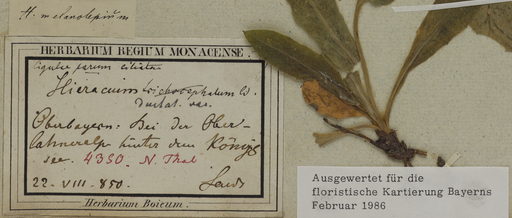 H. melanolepium
HERBARIUM REGIUM MONACENSE.
ligulae parum ciliatae
Hieracium trichocephalum W.
Oberbayern: Bei der Ober-
lahneralp hinter dem Königs
see. 4350. N. Thal
22 - VIII - 850.
Herbarium Boicum.
Ausgewertet für die
floristische Kartierung Bayerns
Februar 1986